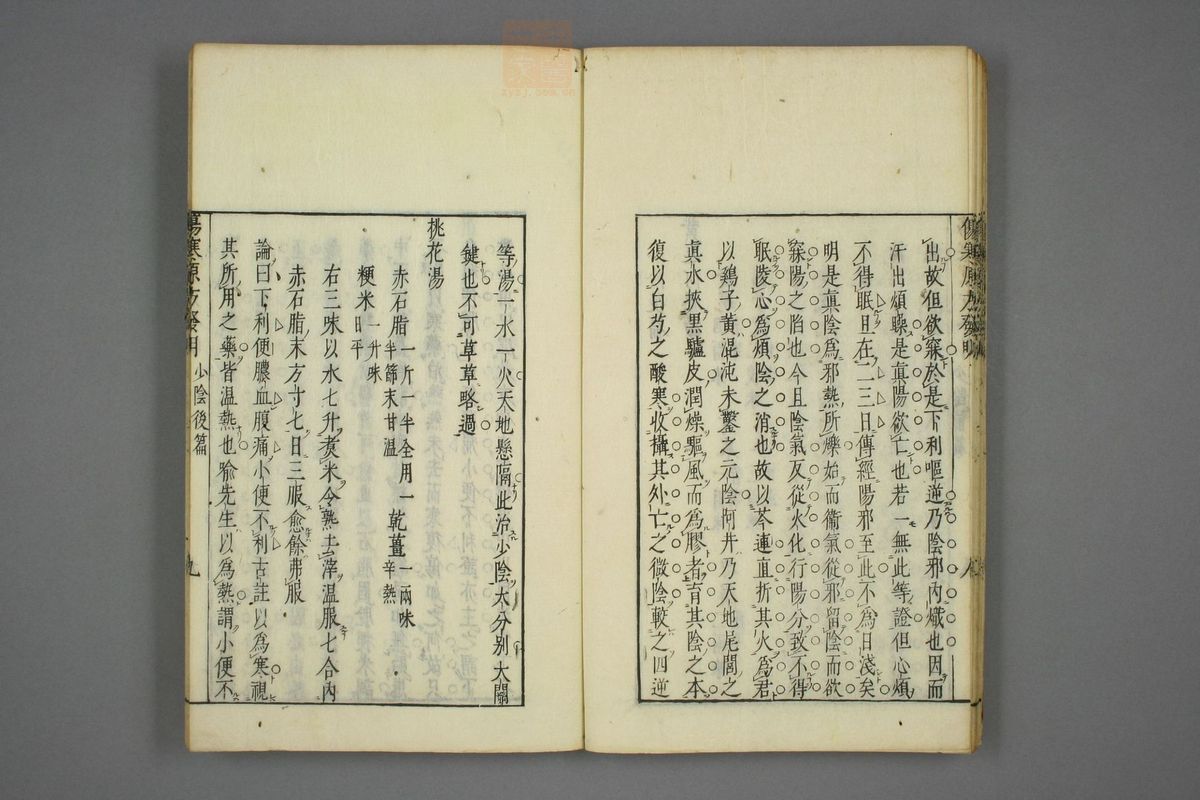 傷寒原方發明
出故但欲寐於是下利嘔逆乃陰邪內熾也因而
汗出煩躁是真陽欲亡也若一無此等證但心煩
不得眠且在二三日傳經陽邪至此不為日淺矣
明是真陰為邪熱所爍始而衞氣從邪留陰而欲
寐陽之陷也今且陰氣反從火化行陽分致不得
眠陵心為煩陰之消也故以芩連直折其火為君
以鷄子黃混沌未鑿之元陰阿井乃天地尾閭之
真水挾黑驢皮潤燥驅風而為膠者育其陰之本
復以白芍之酸寒收攝其外亡之微陰較之四逆
等湯一水一火天地懸隔此治少陰大分別大關
鍵也不可草草略過
桃花湯
赤石脂一斤一半全用一半篩末甘溫 乾薑一兩味辛熱
粳米一升味甘平
右三味以水七升煮米令熟去滓溫服七合內
赤石脂末方寸七日三服愈餘弗服
論曰下利便膿血腹痛小便不利古註以為寒視
其所用之藥皆溫熱也喻先生以為熱謂小便不
傷寒原方發明 少陰後篇 九